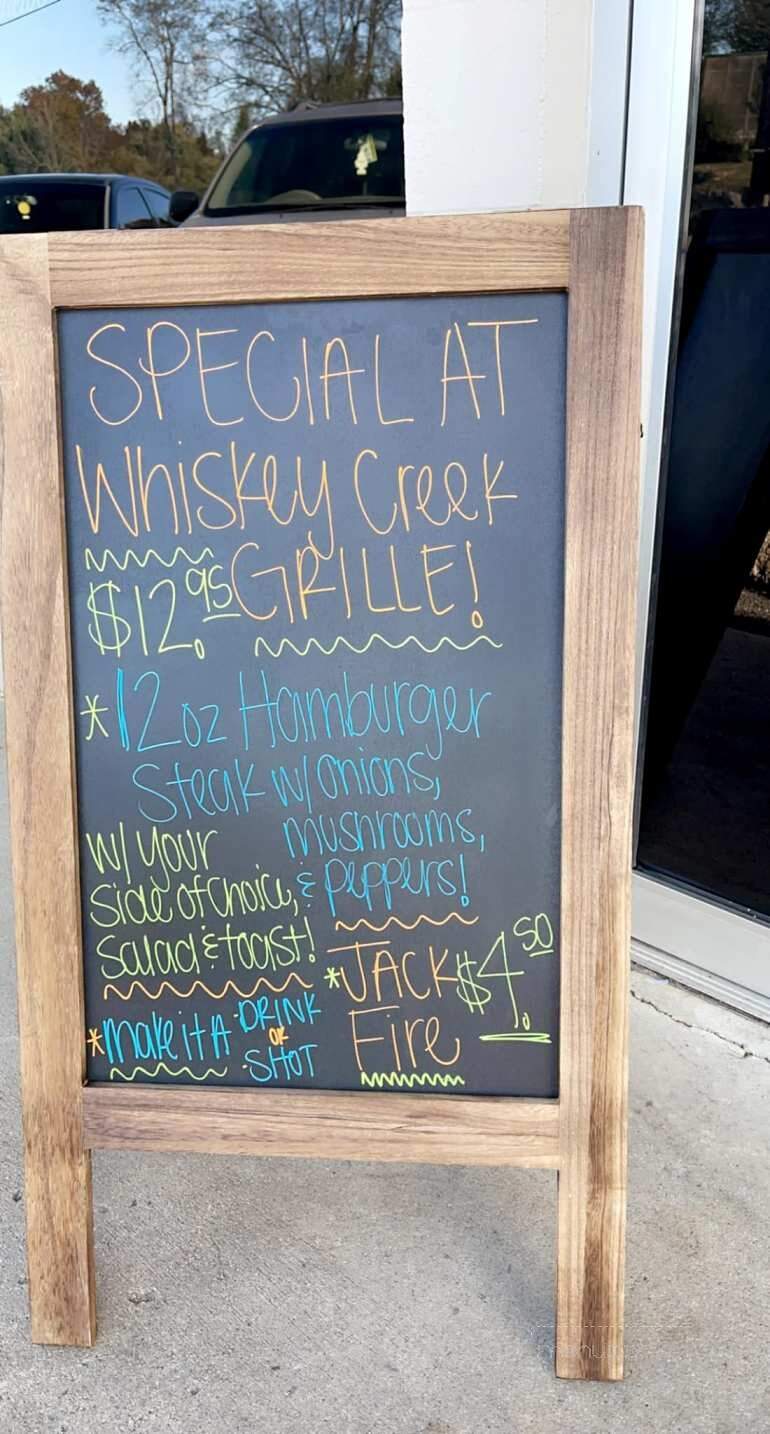 SPECIAL AT
Whiskey Creek
GRILLE!
$12.95
*12oz Hamburger
Steak w/ onions,
mushrooms,
& peppers!
w/ your
side of choice,
salad & toast!
*JACK
Fire
$4.50
*make it A
·DRINK
OR
·SHOT